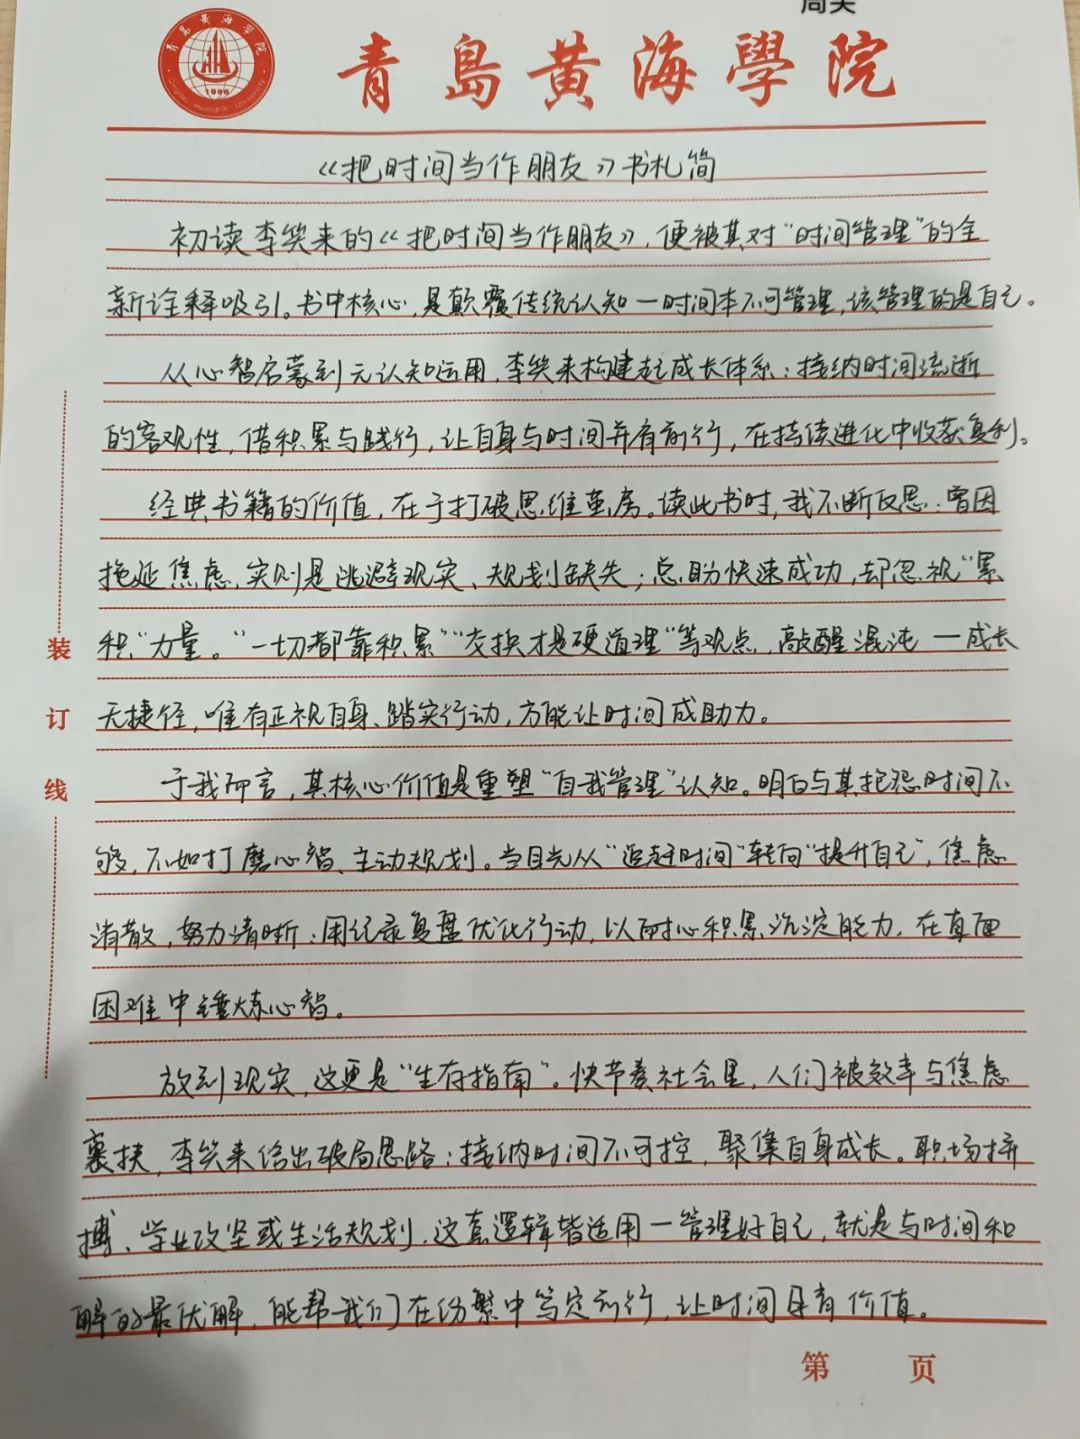 青島黄海學院
《把时间当作朋友》书札简
初读李笑来的《把时间当作朋友》,便被其对“时间管理”的全
新诠释吸引。书中核心,是颠覆传统认知—时间本不可管理,该管理的是自己。
从心智启蒙到元认知运用,李笑来构建起成长体系:接纳时间流逝
的客观性,借积累与践行,让自身与时间并肩前行,在持续进化中收获复利。
经典书籍的价值,在于打破思维茧房。读此书时,我不断反思:曾因
拖延焦虑,实则是逃避现实、规划缺失;总盼快速成功,却忽视“累
积”力量。“一切都靠积累”“交换才是硬道理”等观点,敲醒混沌—成长
无捷径,唯有正视自身、踏实行动,方能让时间成助力。
于我而言,其核心价值是重塑“自我管理”认知。明白与其抱怨时间不
够,不如打磨心智、主动规划。当目光从“追赶时间”转向“提升自己”,焦虑
消散,努力清晰:用记录复盘优化行动,以耐心积累沉淀能力,在直面
困难中锤炼心智。
放到现实,这更是“生存指南”。快节奏社会里,人们被效率与焦虑
裹挟,李笑来给出破局思路:接纳时间不可控,聚集自身成长。职场拼
搏、学业攻坚或生活规划,这套逻辑皆适用—管理好自己,就是与时间和
解的最优解,能帮我们在纷繁中笃定前行,让时间具有价值。
装
订
线
第 页